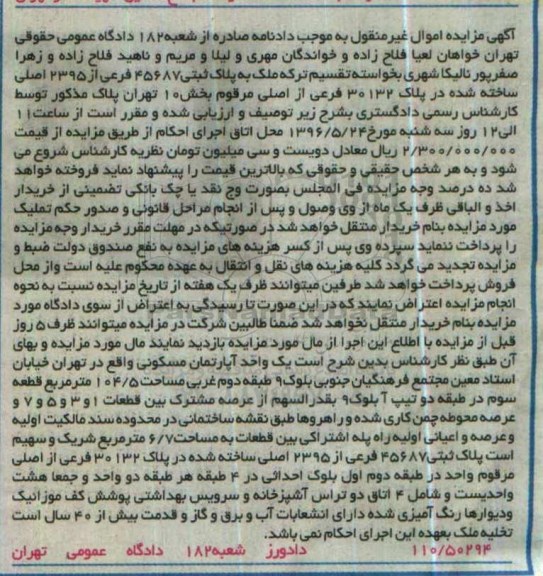 آگهی مزایده اموال غیرمنقول به موجب دادنامه صادره از شعبه۱۸۲ دادگاه عمومی حقوقی
تهران خواهان لعیا فلاح زاده و خواندگان مهری و لیلا و مریم و ناهید فلاح زاده و زهرا
صفرپور نالیکا شهری بخواسته تقسیم ترکه ملک به پلاک ثبتی ۴۵۶۸۷ فرعی از ۲۳۹۵ اصلی
ساخته شده در پلاک ۳۰۱۳۲ فرعی از اصلی مرقوم بخش۱۰ تهران پلاک مذکور توسط
کارشناس رسمی دادگستری بشرح زیر توصیف و ارزیابی شده و مقرر است از ساعت۱۱
الی۱۲ روز سه شنبه مورخ۱۳۹۶/۵/۲۴ محل اتاق اجرای احکام از طریق مزایده از قیمت
۲/۳۰۰/۰۰۰/۰۰۰ ریال معادل دویست و سی میلیون تومان نظریه کارشناس شروع می
شود و به هر شخص حقیقی و حقوقی که بالاترین قیمت را پیشنهاد نماید فروخته خواهد
شد ده درصد وجه مزایده فی المجلس بصورت وج نقد یا چک بانکی تضمینی از خریدار
اخذ و الباقی ظرف یک ماه از وی وصول و پس از انجام مراحل قانونی و صدور حکم تملیک
مورد مزایده بنام خریدار منتقل خواهد شد در صورتیکه در مهلت مقرر خریدار وجه مزایده
را پرداخت ننماید سپرده وی پس از کسر هزینه های مزایده به نفع صندوق دولت ضبط و
مزایده تجدید می گردد کلیه هزینه های نقل و انتقال به عهده محکوم علیه است واز محل
فروش پرداخت خواهد شد طرفین میتوانند ظرف یک هفته از تاریخ مزایده نسبت به نحوه
انجام مزایده اعتراض نمایند که در این صورت تا رسیدگی به اعتراض از سوی دادگاه مورد
مزایده بنام خریدار منتقل نخواهد شد ضمنا طالبین شرکت در مزایده میتوانند ظرف ۵ روز
قبل از مزایده با اطلاع این اجرا از مال مورد مزایده بازدید نمایند مال مورد مزایده و بهای
آن طبق نظر کارشناس بدین شرح است یک واحد آپارتمان مسکونی واقع در تهران خیابان
استاد معین مجتمع فرهنگیان جنوبی بلوک۹ طبقه دوم غربی مساحت ۱۰۴/۵ مترمربع قطعه
سوم در طبقه دو تیپ آ بلوک۹ بقدرالسهم از عرصه مشترک بین قطعات ۱و۳ و ۵ و ۷ و
عرصه محوطه چمن کاری شده و راهروها طبق نقشه ساختمانی در محدوده سند مالکیت اولیه
و عرصه و اعیانی اولیه راه پله اشتراکی بین قطعات به مساحت۶/۷ مترمربع شریک و سهیم
است پلاک ثبتی۴۵۶۸۷ فرعی از ۲۳۹۵ اصلی ساخته شده در پلاک ۳۰۱۳۲ فرعی از اصلی
مرقوم واحد در طبقه دوم اول بلوک احداثی در ۴ طبقه هر طبقه دو واحد و جمعا هشت
واحدیست و شامل ۴ اتاق دو تراس آشپزخانه و سرویس بهداشتی پوشش کف موزائیک
ودیوارها رنگ آمیزی شده دارای انشعابات آب و برق و گاز و قدمت بیش از ۴۰ سال است
تخلیه ملک بعهده این اجرای احکام نمی باشد.
۱۱۰/۵۰۲۹۴ دادورز شعبه۱۸۲ دادگاه عمومی تهران